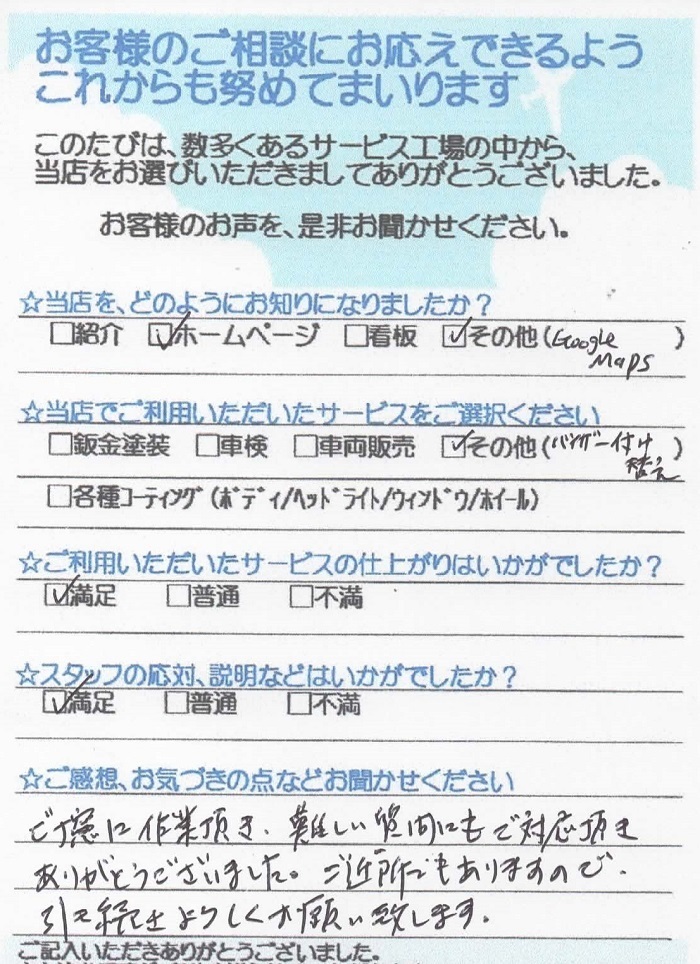 お客様のご相談にお応えできるよう
これからも努めてまいります
このたびは、数多くあるサービス工場の中から、
当店をお選びいただきましてありがとうございました。
お客様のお声を、是非お聞かせください。
☆当店を、どのようにお知りになりましたか？
□紹介 ☑ホームページ □看板 ☑その他(Google Maps)
☆当店でご利用いただいたサービスをご選択ください
□鈑金塗装 □車検 □車両販売 ☑その他(バンパー付け替え)
□各種ｺｰﾃｨﾝｸﾞ(ﾎﾞﾃﾞｨ/ﾍｯﾄﾞﾗｲﾄ/ｳｨﾝﾄﾞｳ/ﾎｲｰﾙ)
☆ご利用いただいたサービスの仕上がりはいかがでしたか？
☑満足 □普通 □不満
☆スタッフの応対、説明などはいかがでしたか？
☑満足 □普通 □不満
☆ご感想、お気づきの点などお聞かせください
ご丁寧に作業頂き、難しい質問にもご対応頂き
ありがとうございました。ご近所でもありますので、
引き続きよろしくお願い致します。
ご記入いただきありがとうございました。